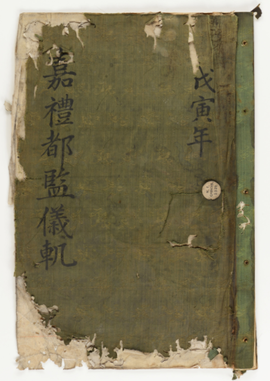 戊寅年
嘉禮都監儀軌